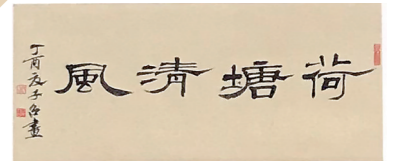 荷塘清風
丁酉夏子名畫